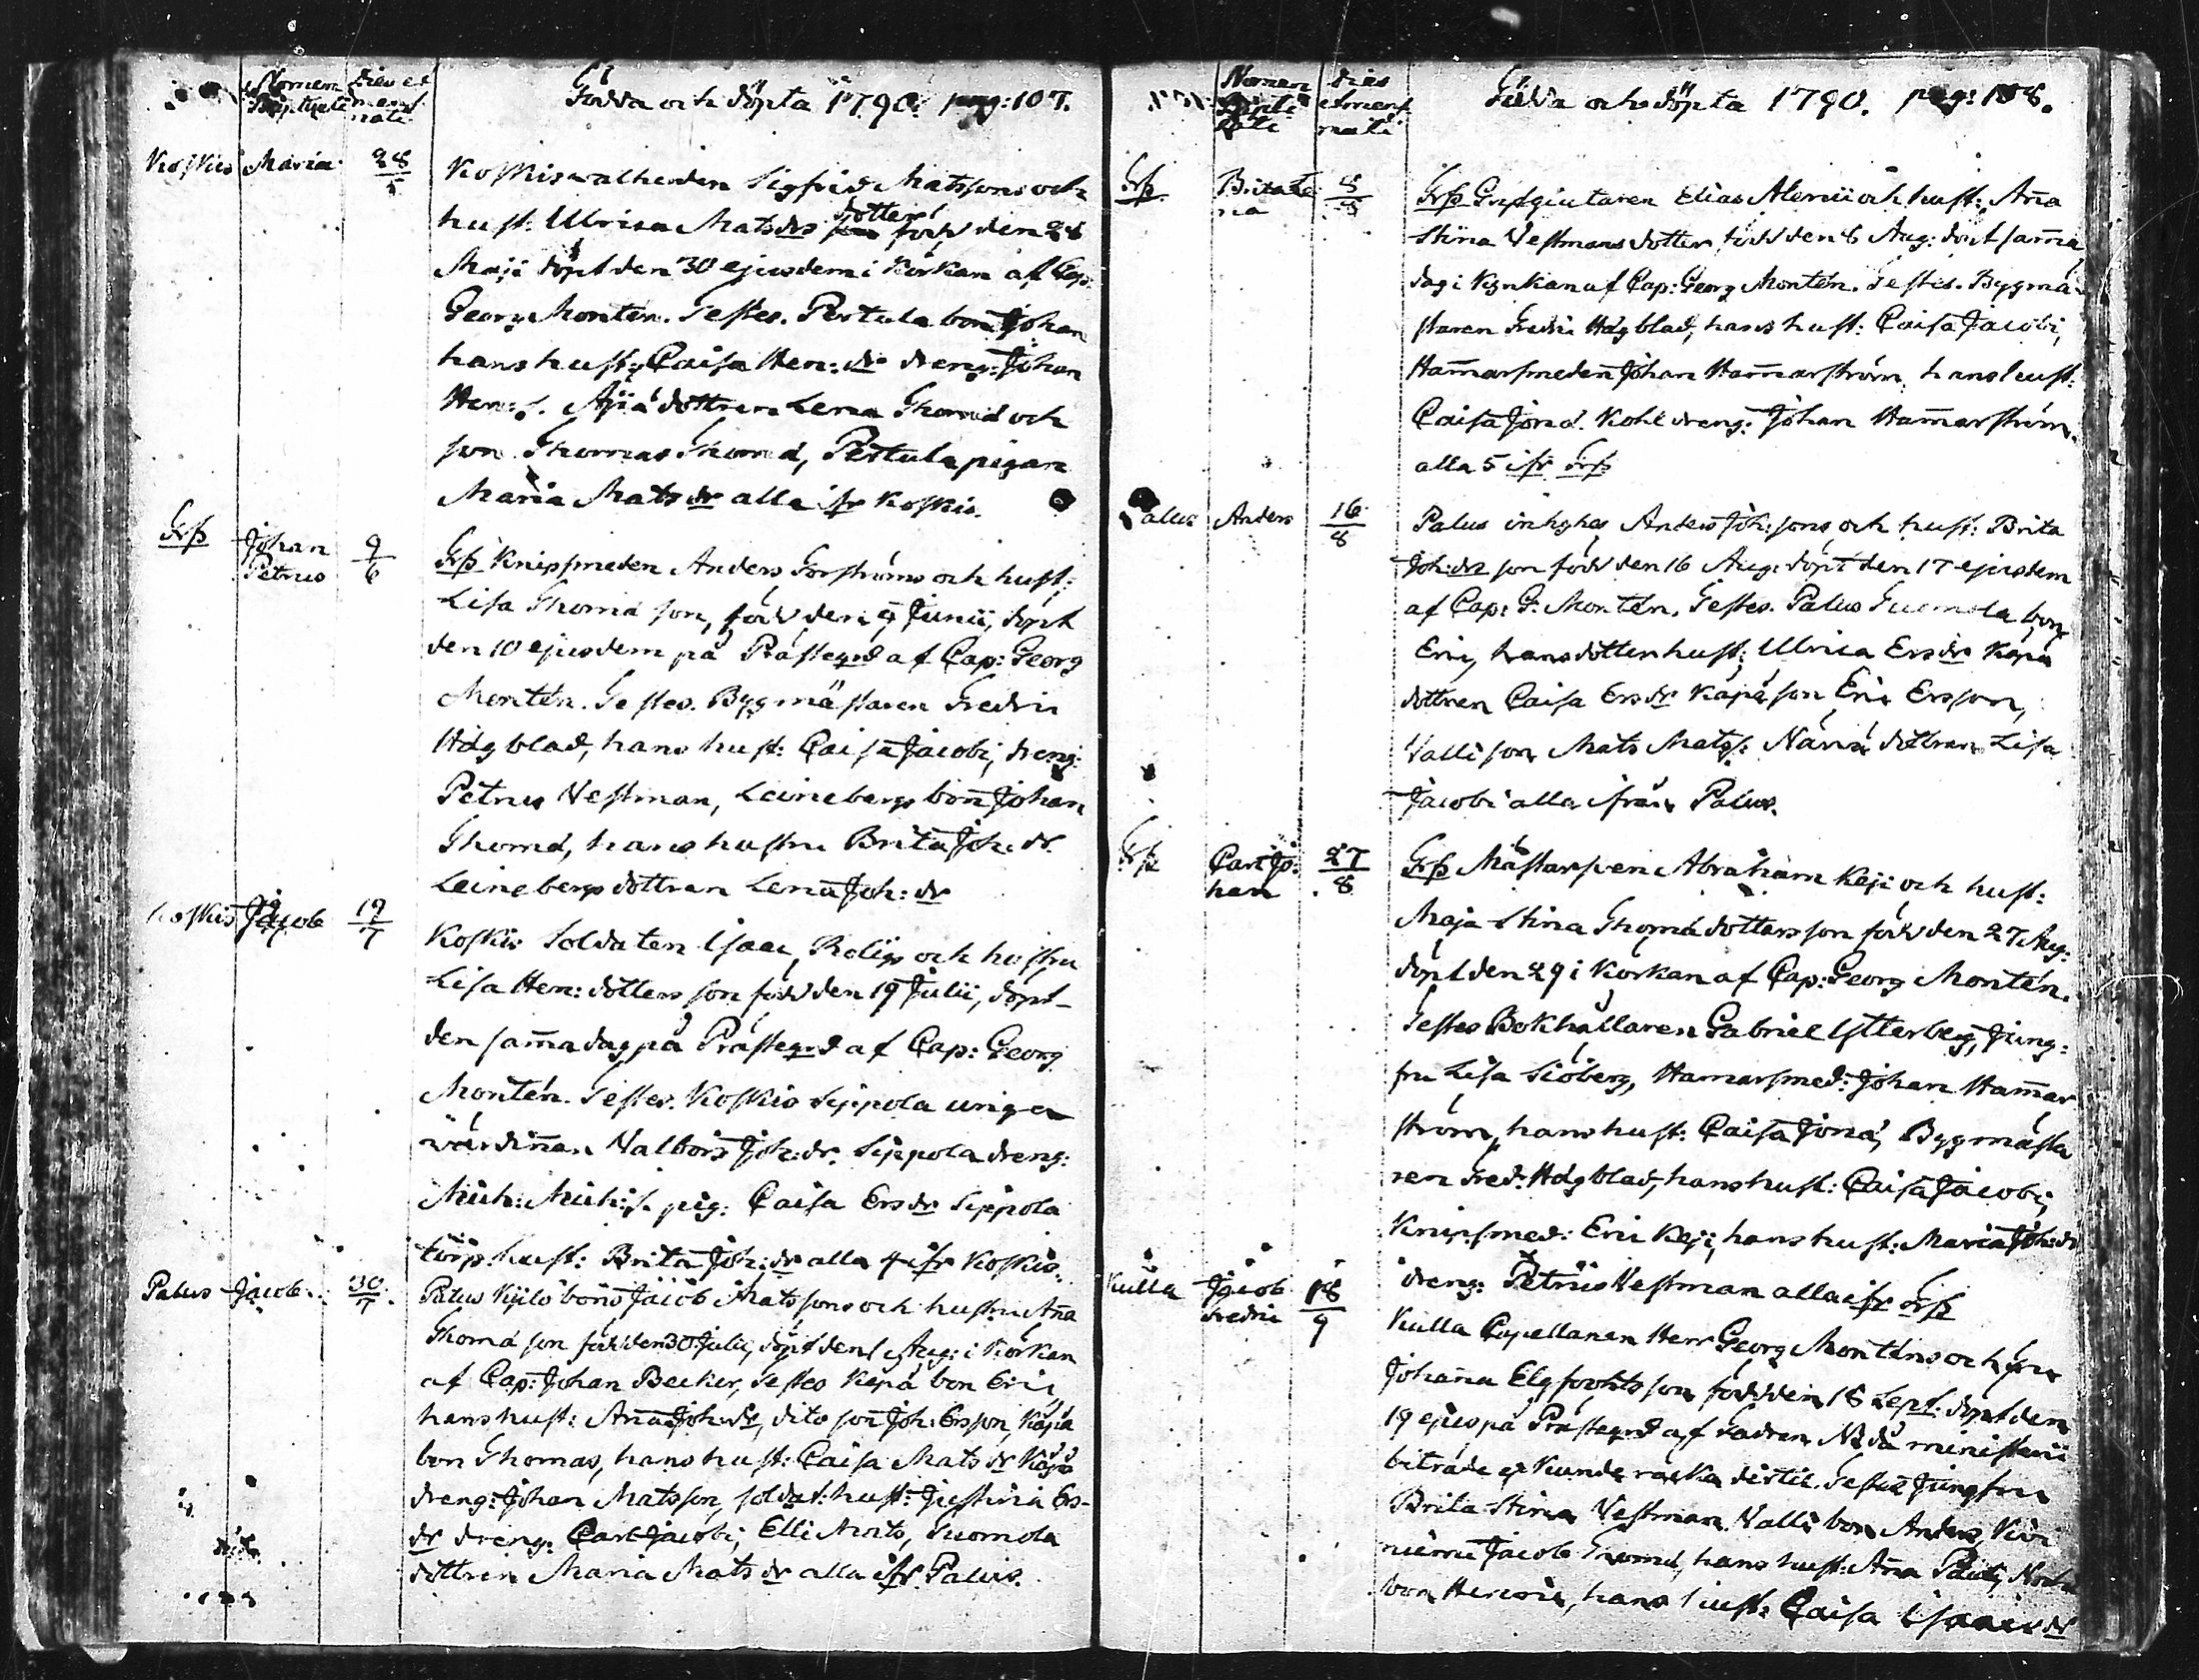 Nomen Dies et
Baptizati mens.
nati
Födda och döpta 1790. pag: 107.
Koskis Maria 28/5
Koskis valherden Sigfrid Matssons och
hust: Ulrica Matsdrs dotter född den 28
Maji döpt den 30 ejusdem i Körkan af Cap:
Georg Montén. Testes. Pertula bon Johan
hans hust: Caisa Hen: dr dreng: Johan
Hen: s. dottren Lena Thomæ och
son Thomas Thomæ, Pertula pigan
Maria Matsdr alla ifr Koskis.
Frß Johan Petrus 9/6
Frß Knipsmeden Anders Forströms och hust:
Lisa Thomæ son, född den 9 Junii, döpt
den 10 ejusdem på Prästegrd af Cap: Georg
Montén. Testes. Byggmästaren Fredric
Högblad, hans hust: Caisa Jacobi, dreng:
Petrus Vestman, Leinebergs bon Johan
Thomæ, hans hustru Brita Joh: dr.
Leinebergs dottren Lena Joh: dr
Koskis Jacob 19/7
Koskis Soldaten Isaac Roligs och hustru
Lisa Hen: dotters son född den 19 Julii, döpt
den samma dag på Prästegrd af Cap: Georg
Montén. Testes. Koskis Sippola unga
värdinnan Valborg Joh: dr. Sippola dreng:
Mich: Mich: s. pig: Caisa Ersdr Sippola
törp: hust: Brita Joh: dr alla 4 ifr Koskis.
Palus Jacob 30/7
Palus bons Jacob Matssons och hustru Anna
Thomæ son född den 30 Julii, döpt den 1 Aug: i Körkan
af Cap: Johan Becker, Testes Kepä bon Eric
hans hust: Anna Joh: dr, dito son Joh: Ersson, Käpä
bon Thomas, hans hust: Caisa Matsdr Käpä
dreng: Johan Matsson, soldat: hust: Justina Ers-
dr dreng: Carl Jacobi, Elli Mats, Suomola
dottren Maria Matsdr alla ifr Palus.
Nomen Dies
Bapti et mens
zati nati
Födda och döpta 1790. pag: 108.
Frß Brita Le na 8/8
Frß Grytgiutaren Elias Alenii och hust: Anna
Stina Vestmans dotter, född den 8 Aug: döpt samma
dag i Kyrkian af Cap: Georg Montén. Testes. Bygmä-
staren Fredric Högblad, hans hust: Caisa Jacobi,
Hammarsmeden Johan Hammarström, hans hust:
Caisa Jonæ. Kohl dreng: Johan Hammarström.
alla 5 ifr Frß
Palus Anders 16/8
Palus inhyhes Anders Joh: sons och hust: Brita
Joh: dr son född den 16 Aug: döpt den 17 ejusdem
af Cap: G: Montén. Testes. Palus Suomola bon
Eric, hans dotter hust: Ulrica Ersdr Käpä
dottren Caisa Ersdr Käpä son Eric Ersson,
Valli son Mats Mats: s: dottren Lisa
Jacobi alla ifrån Palus.
Frß Carl Jo: han 27/8
Frß Mästarsven Abraham Keji och hust:
Maja Stina Thomæ dotters son född den 27 Aug:
döpt den 29 i Körkan af Cap: Georg Montén.
Testes Bokhållaren Gabriel Ytterberg, Jung:
fru Lisa Siöberg, Hamarsmed: Johan Hammar
ström, hans hust: Caisa Jonæ, Bygmästa
ren Fred: Högblad, hans hust: Caisa Jacobi,
Knipsmed: Eric Keji, hans hust: Maria Joh: dr
dreng: Petrus Vestman alla ifr Frß
Kulla Jacob Fredric 18/9
Kulla Capellanen Herr Georg Monténs och fru
Johanna Elgfoohts son född den 18 Sept. döpt den
19 ejus på Prästegrd af Fadren NB då ministerii
biträde ej kunde räcka dertil. Testes Jungfru
Brita Stina Vestman Valli bon Anders, Kivi
niemi Jacob Thomæ, hans hust: Anna Pauli,
bon Henric, hans hust: Caisa Isaacsdr